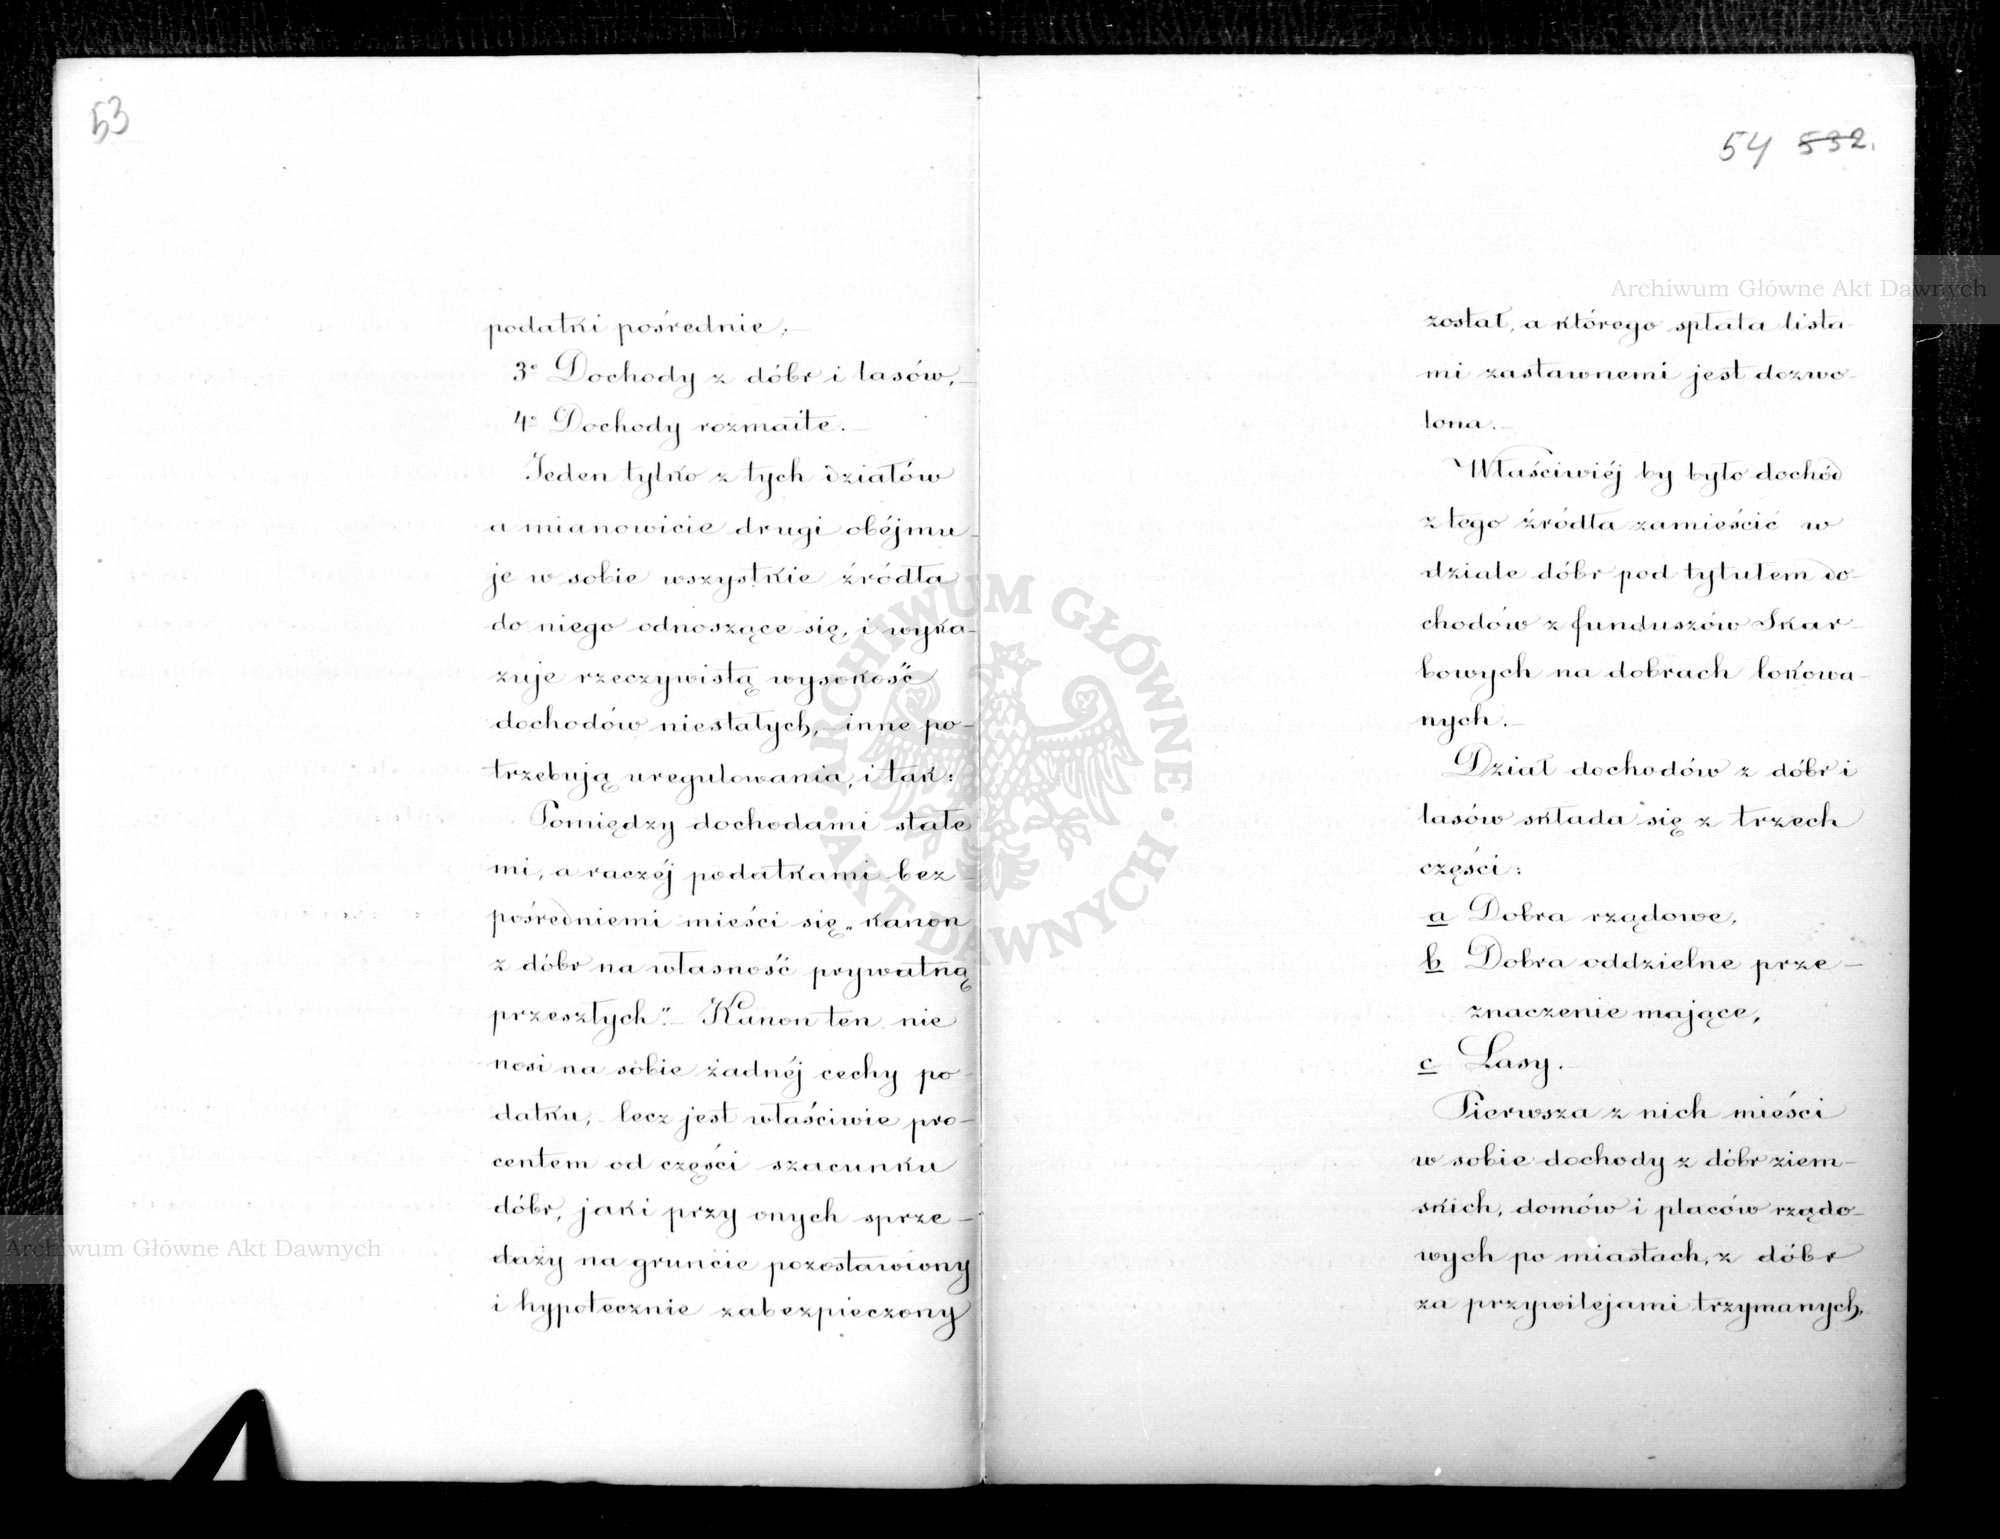 53
podatki pośrednie;—
3º Dochody z dóbr i lasów,—
4º Dochody rozmaite.—
Jeden tylko z tych działów
a mianowicie drugi obéjmu-
je w sobie wszystkie źródła
do niego odnoszące się, i wyka-
zuje rzeczywistą wysokość
dochodów niestałych,—inne po-
trzebują uregulowania, i tak:
Pomiędzy dochodami stałe
mi, a raczéj podatkami bez-
pośredniemi mieści się „kanon
z dóbr na własność prywatną
przeszłych".— Kanon ten nie
nosi na sobie żadnéj cechy po-
datku,— lecz jest właściwie pro-
centem od części szacunku
dóbr, jaki przy onych sprze-
daży na gruncie pozostawiony
i hypotecznie zabezpieczony
54 532.
został, a którego spłata lista-
mi zastawnemi jest dozwo-
lona.—
Właściwiéj by było dochód
z tego źródła zamieścić w
dziale dóbr pod tytułem do-
chodów z funduszów Skar-
bowych na dobrach lokowa-
nych.—
Dział dochodów z dóbr i
lasów składa się z trzech
części:
a Dobra rządowe,
b Dobra oddzielne prze-
znaczenie mające,
c Lasy.—
Pierwsza z nich mieści
w sobie dochody z dóbr ziem-
skich, domów i placów rządo-
wych po miastach, z dóbr
za przywilejami trzymanych,
Archiwum Główne Akt Dawnych
Archiwum Główne Akt Dawnych
ARCHIWUM GŁÓWNE
AKT DAWNYCH